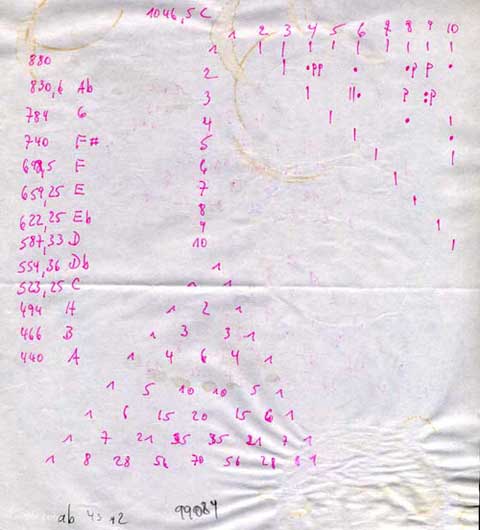 1046,5 C
1 2 3 4 5 6 7 8 9 10
880
1
2
830,6 Ab
3
784 G
4
740 F#
5
698,5 F
6
659,25 E
7
622,25 Eb
8
9
587,33 D
10
554,36 Db
1
523,25 C
1 1
494 H
1 2 1
466 B
1 3 3 1
440 A
1 4 6 4 1
1 5 10 10 5 1
1 6 15 20 15 6 1
1 7 21 35 35 21 7 1
1 8 28 56 70 56 28 8 1
ab
99084